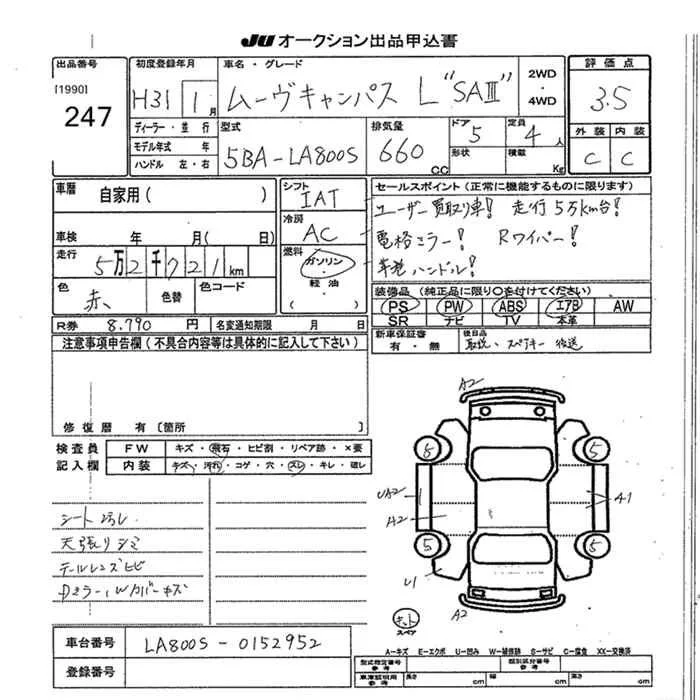 JU オークション出品申込書
出品番号 初度登録年月 車名・グレード 評価点
[1990]
247
H31 1月 ムーヴキャンパス L "SAⅢ" 2WD・4WD 3.5
ディーラー・並行 型式 排気量 ドア 5 定員 4人 外装 内装
モデル年式 年 5BA-LA800S 660CC 形状 積載 Kg C C
ハンドル 左・右
車暦 自家用( ) シフト IAT セールスポイント(正常に機能するものに限ります)
ユーザー買取り車! 走行5万km台!
車検 年 月( 日) 冷房 AC 電格ミラー! Rワイパー!
走行 5万2千721km 燃料 ガソリン・軽油・( ) 革巻ハンドル!
色 赤 色替 色コード 装備品(純正品に限り○を付けてください)
PS PW ABS エアB AW
SR ナビ TV 本革
R券 8.790円 名変通知期限 月 日 新車保証書 有・無 後日品
注意事項申告欄(不具合内容等は具体的に記入して下さい) 取説、スペアキー 後送
修復歴 有〔箇所 〕
検査員記入欄 FW キズ・飛石・ヒビ割・リペア跡・×要
内装 キズ・汚れ・コゲ・穴・スレ・キレ・破レ
天張りシミ
テールレンズヒビ
A2
5 5
A1
A2
5 5
U1
A2
スペア
A-キズ E-エクボ U-凹み W-補修跡 S-サビ C-腐食 XX-交換済
車台番号 LA800S-0152952
登録番号
型式指定番号 参考 類別区分番号 参考
車庫証明用 参考 長さ cm 幅 cm 高さ cm